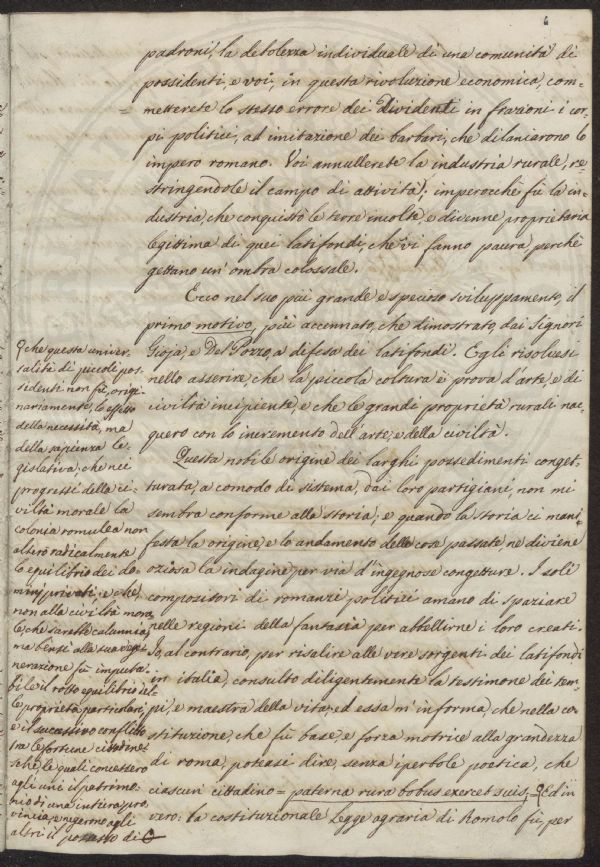 6
padroni, la debolezza individuale di una comunità di
possidenti, e voi, in questa rivoluzione economica, com-
metterete lo stesso errore dei dividenti in frazioni i cor-
pi politici, ad imitazione dei barbari, che dilaniarono lo
impero romano. Voi annullerete la industria rurale, re-
stringendole il campo di attività; imperocchè fu la in-
dustria, che conquistò le terre incolte, e divenne proprietaria
legittima di quei latifondi, che vi fanno paura, perchè
gettano un'ombra colossale.
Ecco nel suo più grande e specioso sviluppamento, il
primo motivo, più accennato, che dimostrato, dai Signori
Gioja, e Del Pozzo, a difesa dei latifondi. Egli risolvesi
nello asserire, che la piccola coltura è prova d'arte, e di
civiltà incipiente, e che le grandi proprietà rurali nac-
quero con lo incremento dell'arte, e della civiltà.
Questa nobile origine dei larghi possedimenti conget-
turata, a comodo di sistema, dai loro partigiani, non mi
sembra conforme alla storia; e quando la storia ci mani-
festa la origine, e lo andamento delle cose passate, ne diviene
oziosa la indagine per via d'ingegnose congetture. I soli
compositori di romanzi politici amano di spaziare
nelle regioni della fantasia per abbellirne i loro creati.
Io, al contrario, per risalire alle vere sorgenti dei latifondi
in italia, consulto diligentemente la testimone dei tem-
pi, e maestra della vita, ed essa m'informa, che nella co-
stituzione, che fu base, e forza motrice alla grandezza
di roma, poteasi dire, senza iperbole poetica, che
ciascun cittadino = paterna rura bobus exercet suis = Ed in
vero: la costituzionale Legge agraria di Romolo fu, per
che questa univer-
salità di piccoli pos-
sidenti non fu, origi-
nariamente, lo effetto
della necessità, ma
della sapienza le-
gislativa; che nei
progressi della ci-
viltà morale la
colonia romulea non
alterò radicalmente
lo equilibrio dei do-
minj privati; e che,
non alla civiltà mora-
le, che sarebbe calunnia,
ma bensì alla sua
nerazione fu imputa-
bile il rotto equilibrio del-
le proprietà particolari,
e il successivo conflitto
tra le fortune cittadine-
sche, le quali concessero
agli uni il patrimo-
nio di una intiera pro-
vincia, e negarono agli
altri il possesso di